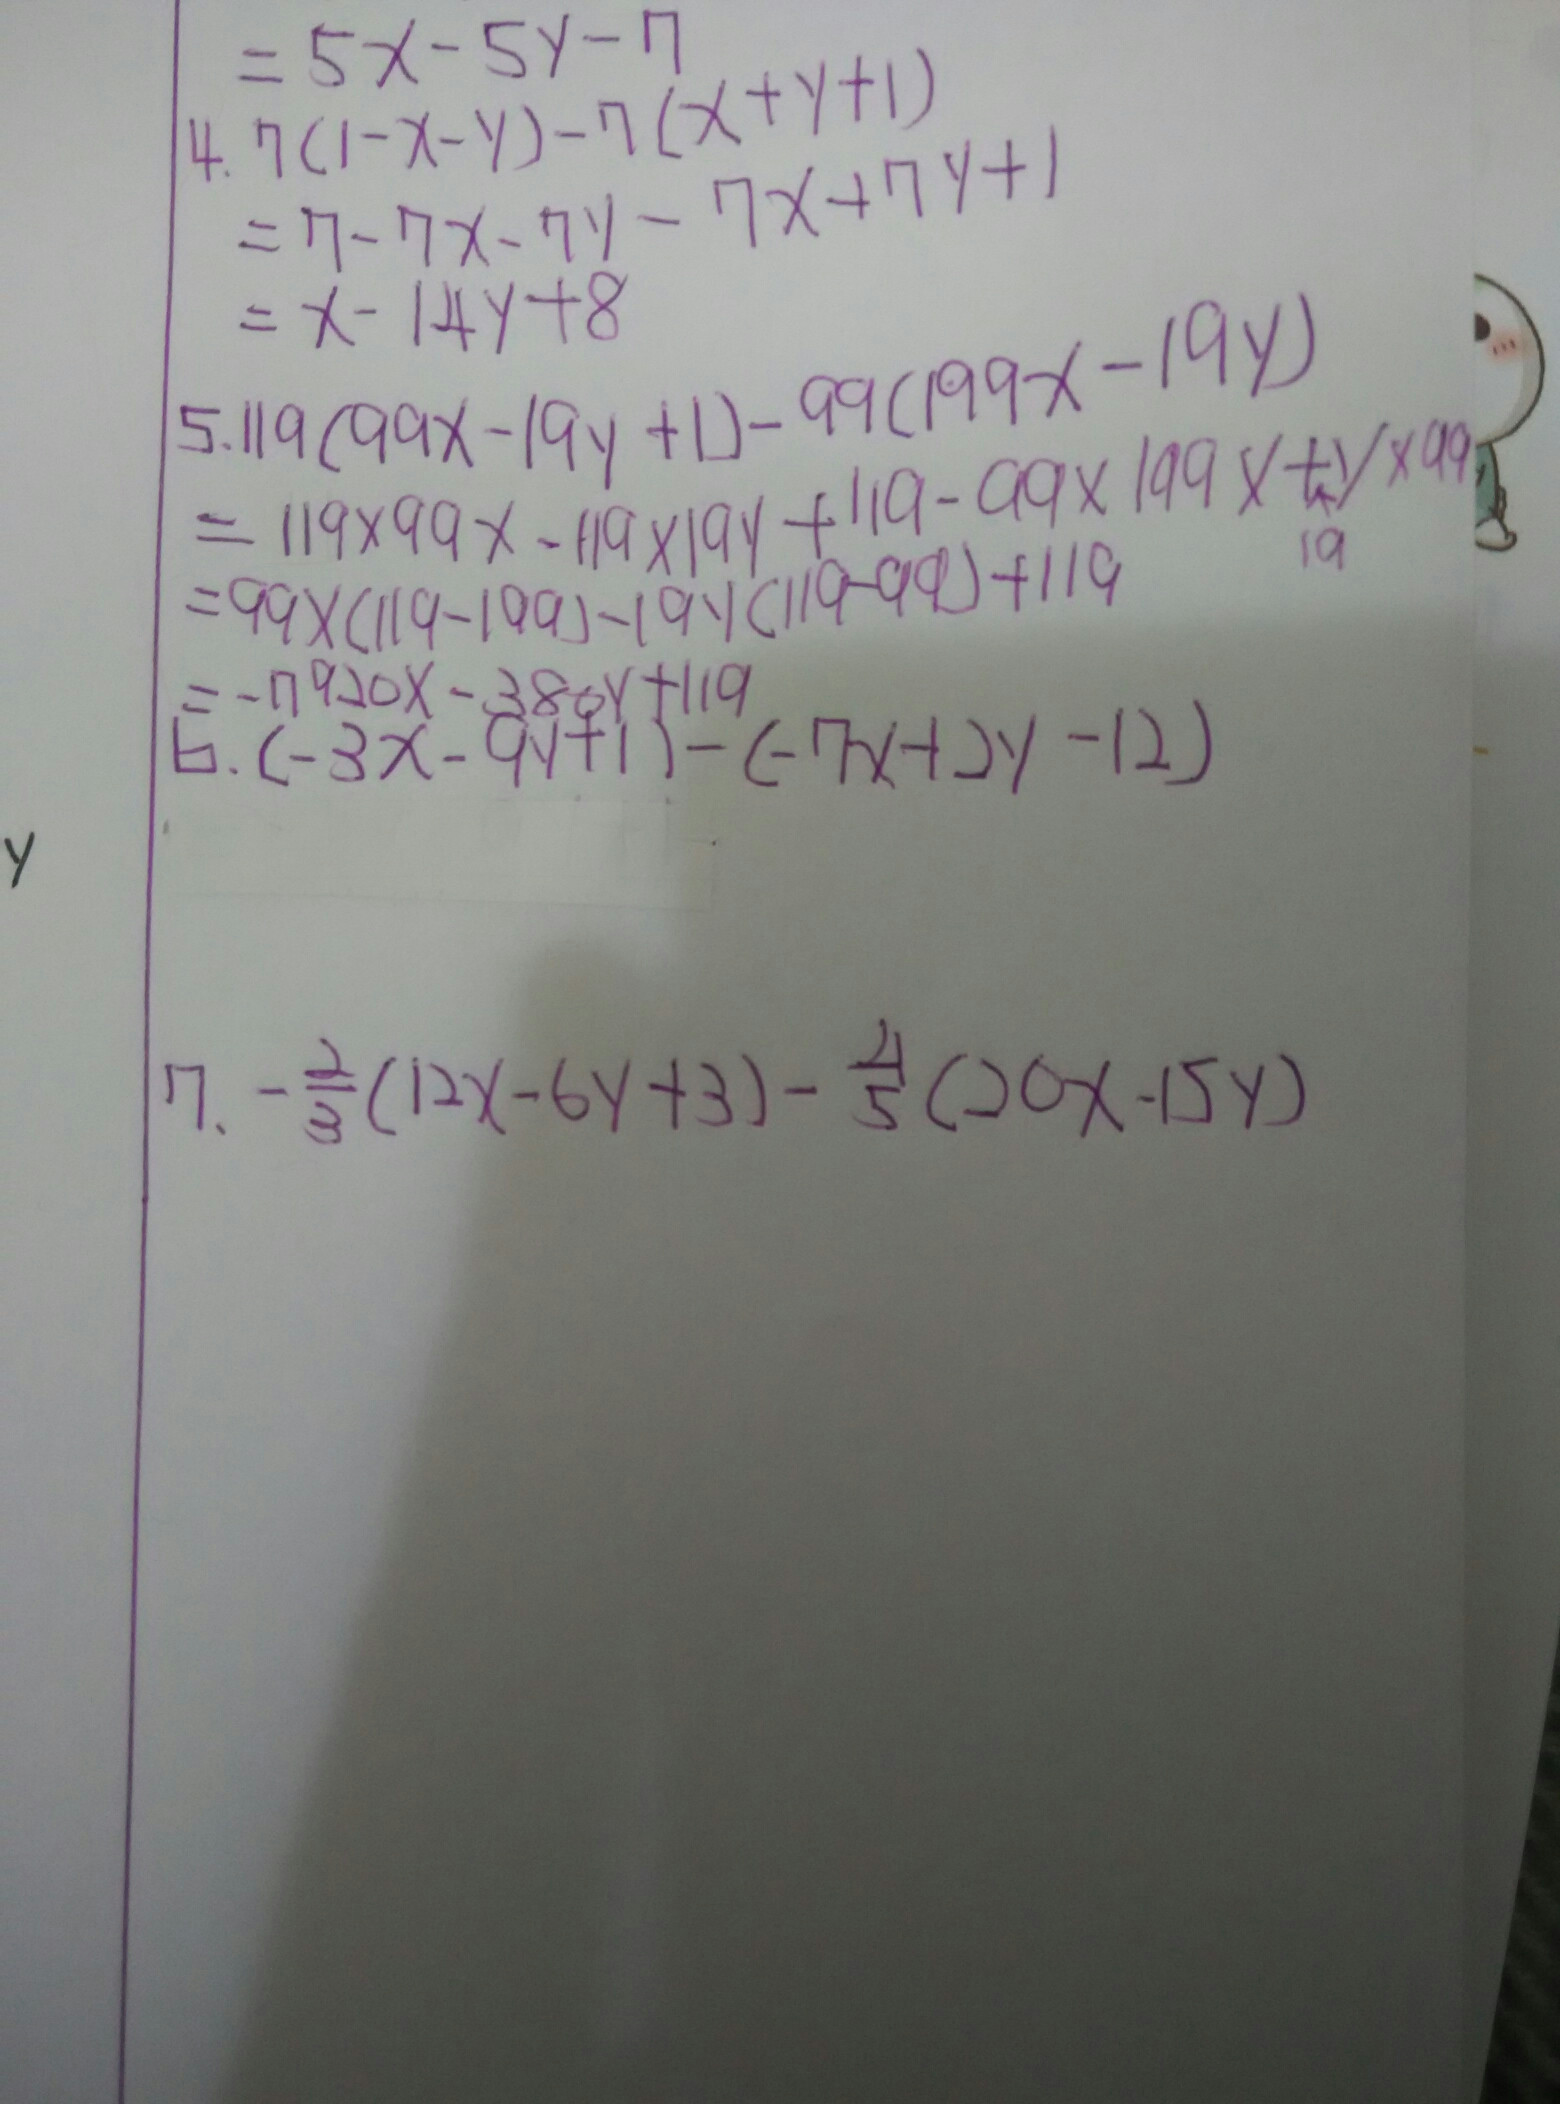 = 5x - 5y - 7
4. 7(1-x-y) - 7(x+y+1)
= 7 - 7x - 7y - 7x + 7y + 1
= x - 14y + 8
5. 119(99x - 19y + 1) - 99(199x - 19y)
= 119×99x - 119×19y + 119 - 99×199x + y×99
19
= 99x(119-199) - 19y(119-99) + 119
= -7920x - 380y + 119
6. (-3x - 9y + 1) - (-7x + 2y - 12)
y
7. -2/3(12x - 6y + 3) - 4/5(20x - 15y)